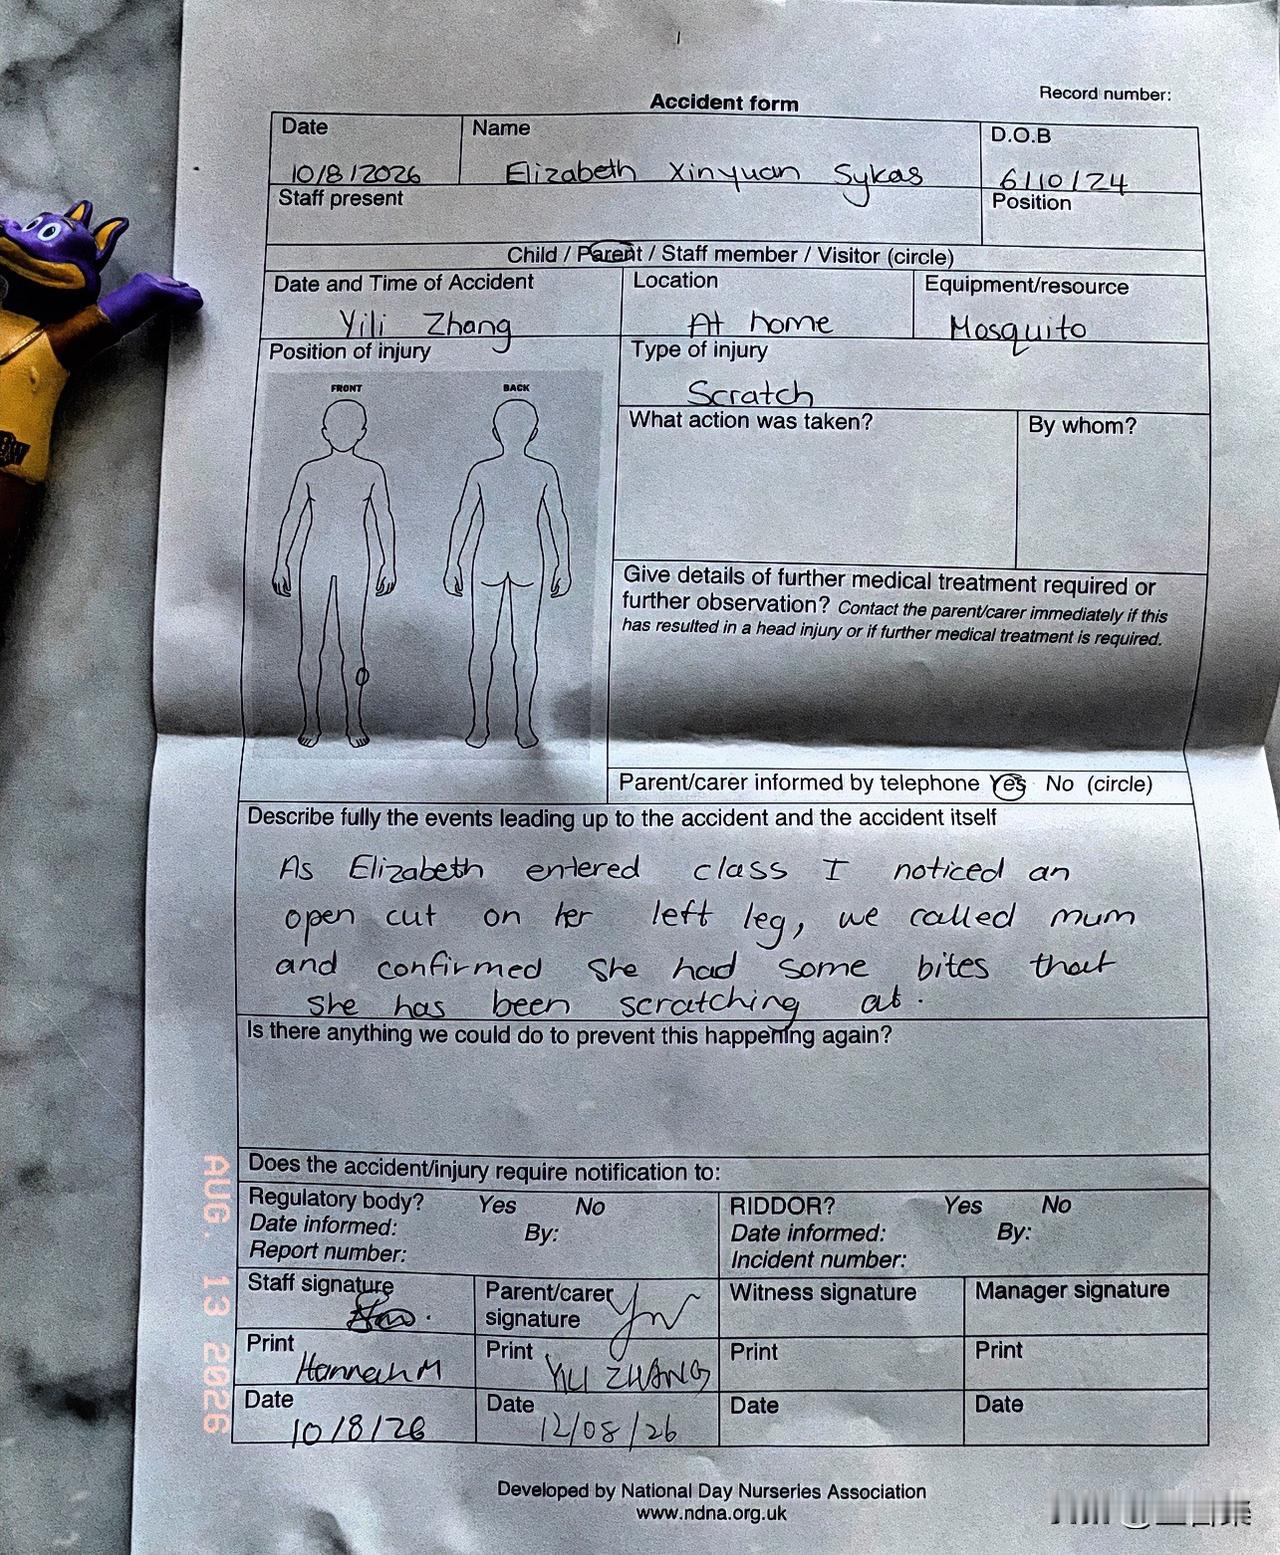 Accident form
Record number:
Date
Name
D.O.B
10/8/2026
Elizabeth Xinyuan Sykas
6/10/24
Staff present
Position
Child / Parent / Staff member / Visitor (circle)
Date and Time of Accident
Location
Equipment/resource
Yili Zhang
At home
Mosquito
Position of injury
Type of injury
Scratch
FRONT
BACK
What action was taken?
By whom?
Give details of further medical treatment required or
further observation? Contact the parent/carer immediately if this
has resulted in a head injury or if further medical treatment is required.
Parent/carer informed by telephone Yes No (circle)
Describe fully the events leading up to the accident and the accident itself
As Elizabeth entered class I noticed an
open cut on her left leg, we called mum
and confirmed she had some bites that
she has been scratching at.
Is there anything we could do to prevent this happening again?
Does the accident/injury require notification to:
Regulatory body? Yes No
Date informed: By:
Report number:
RIDDOR? Yes No
Date informed: By:
Incident number:
Staff signature
Parent/carer
signature
Witness signature
Manager signature
Print
Hannah M
Print
YILI ZHANG
Print
Print
Date
10/8/26
Date
12/08/26
Date
Date
Developed by National Day Nurseries Association
www.ndna.org.uk
AUG. 13 2026